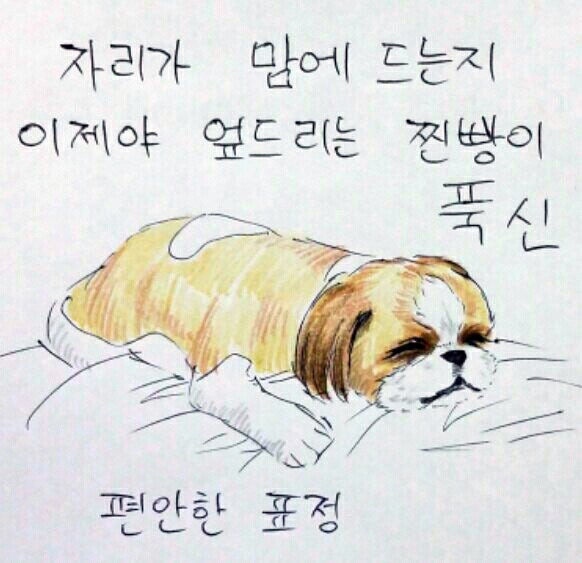 자리가 맘에 드는지
이제야 엎드리는 찐빵이
푹신
편안한 표정